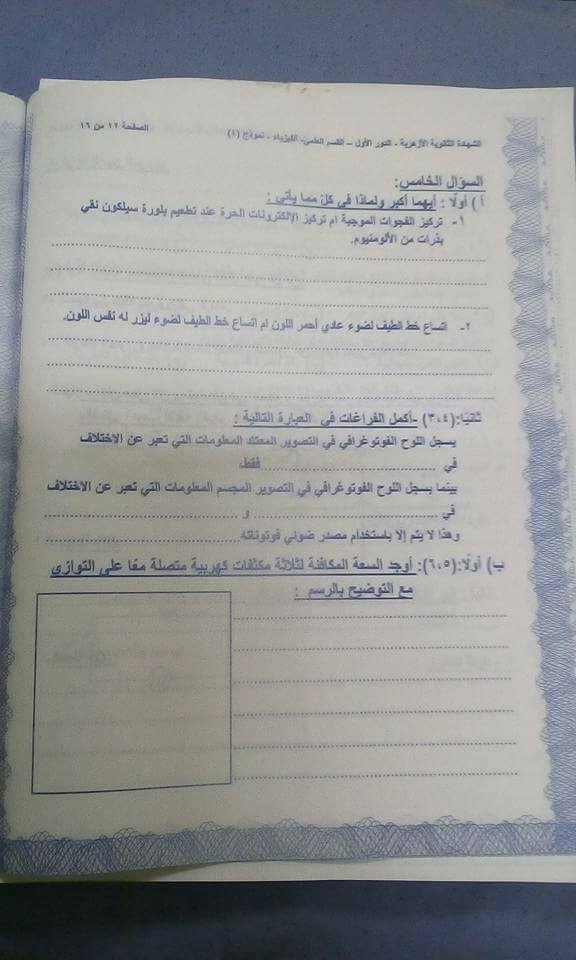 الشهادة الثانوية الأزهرية - الدور الأول – القسم العلمي- الفيزياء - نموذج (٤) الصفحة ١٢ من ١٦
السؤال الخامس:
أ ) أولًا : أيهما أكبر ولماذا في كل مما يأتي :
١- تركيز الفجوات الموجبة ام تركيز الإلكترونات الحرة عند تطعيم بلورة سيلكون نقي
بذرات من الألومنيوم.
٢- اتساع خط الطيف لضوء عادي أحمر اللون ام اتساع خط الطيف لضوء ليزر له نفس اللون.
ثانيًا:(٣،٤) -أكمل الفراغات في العبارة التالية :
يسجل اللوح الفوتوغرافي في التصوير المعتاد المعلومات التي تعبر عن الاختلاف
في ........................ فقط.
بينما يسجل اللوح الفوتوغرافي في التصوير المجسم المعلومات التي تعبر عن الاختلاف
في ........................ و ........................
وهذا لا يتم إلا باستخدام مصدر ضوئي فوتوناته........................
ب) أولًا:(٦،٥): أوجد السعة المكافئة لثلاثة مكثفات كهربية متصلة معًا على التوازي
مع التوضيح بالرسم :